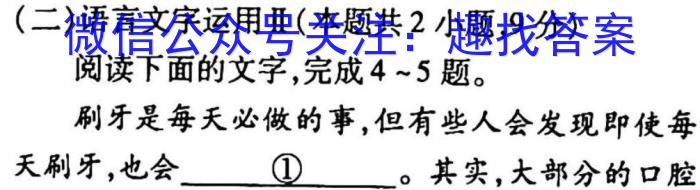 (二)语言文字运用Ⅱ(本题共2小题,9分)
微信公众号关注：趣找答案
阅读下面的文字,完成4~5题。
刷牙是每天必做的事,但有些人会发现即使每
天刷牙,也会①。其实,大部分的口腔